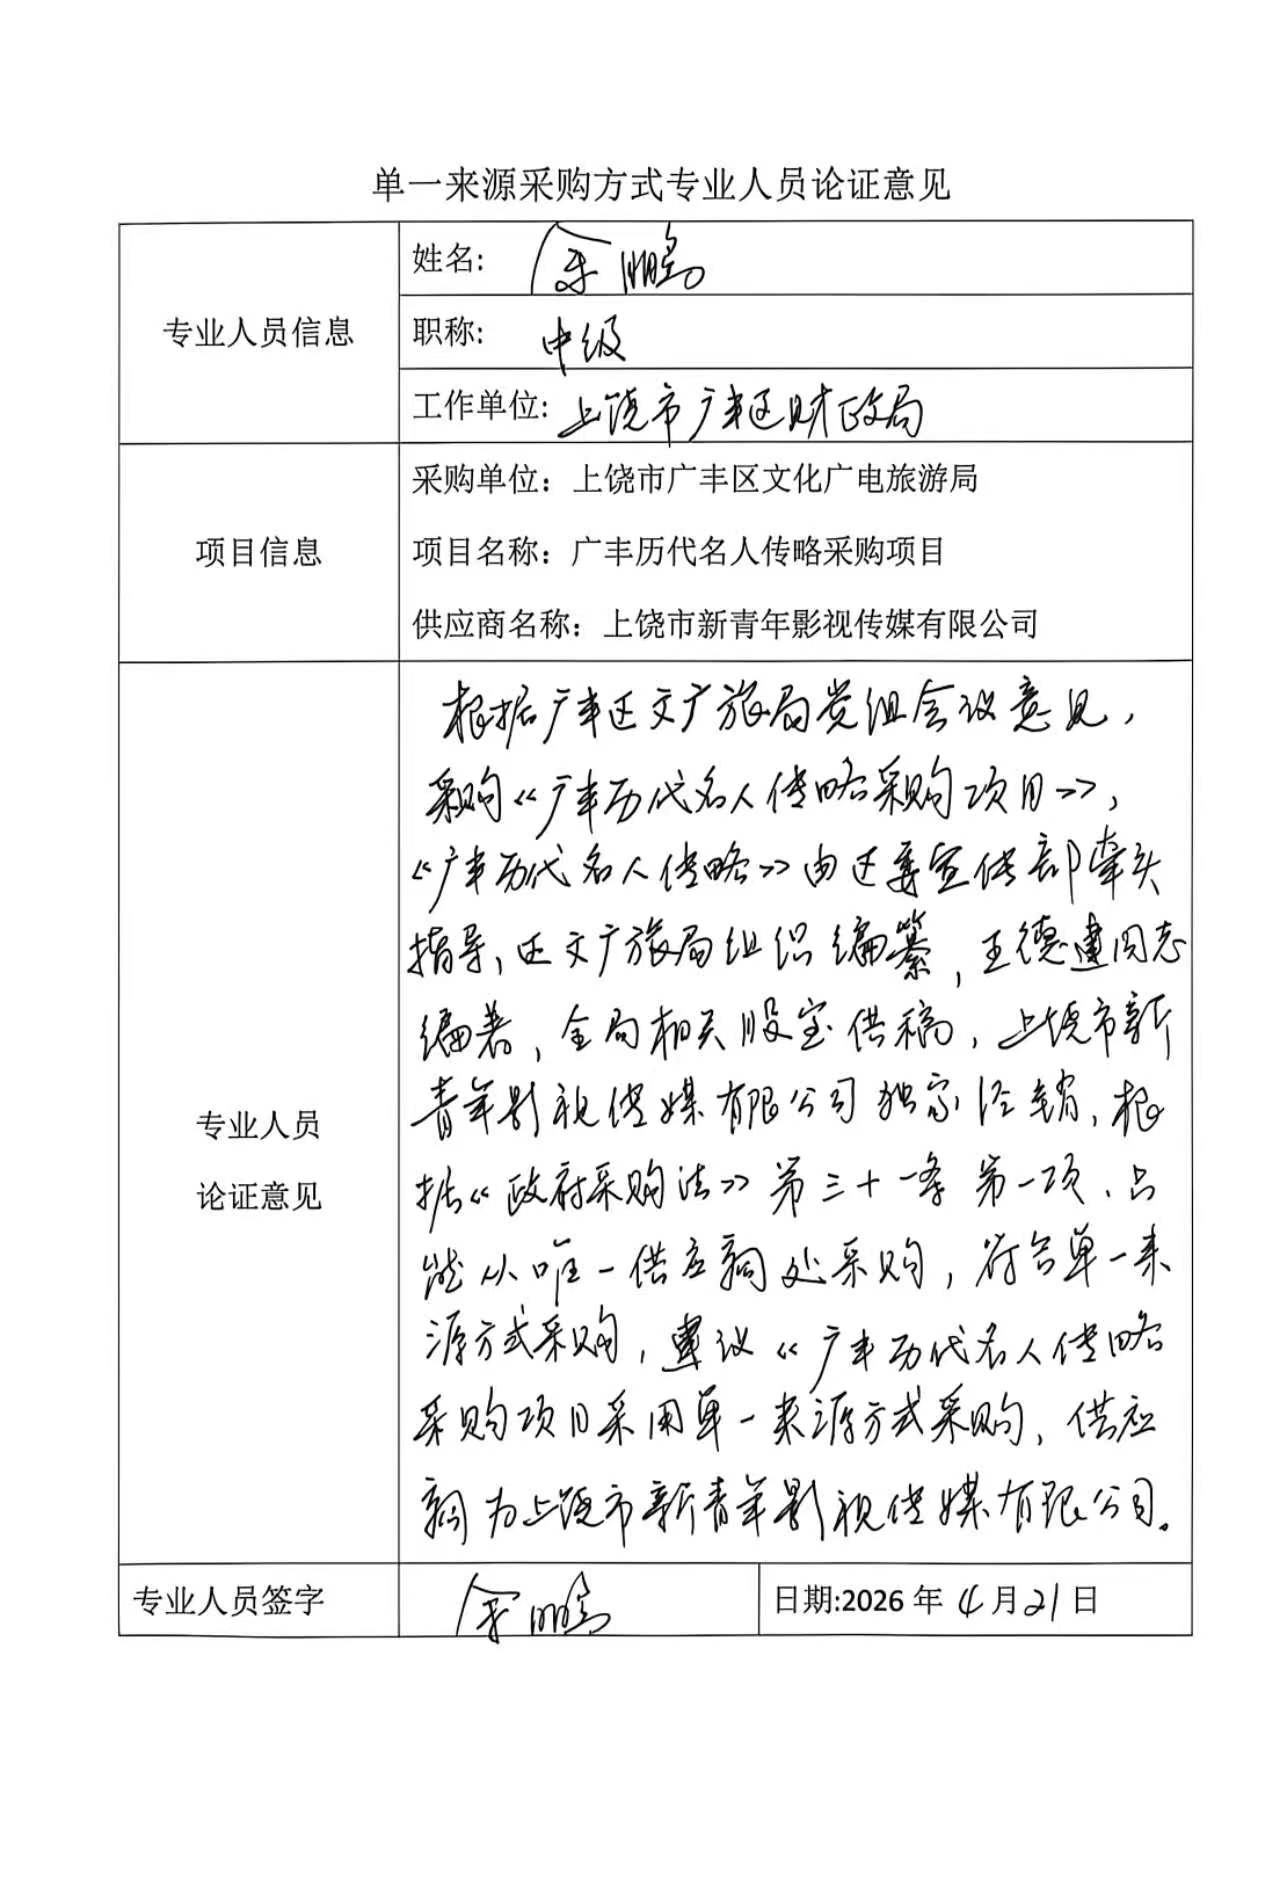 单一来源采购方式专业人员论证意见
专业人员信息
姓名: 余鹏
职称: 中级
工作单位: 上饶市广丰区财政局
项目信息
采购单位：上饶市广丰区文化广电旅游局
项目名称：广丰历代名人传略采购项目
供应商名称：上饶市新青年影视传媒有限公司
专业人员
论证意见
根据广丰区文广旅局党组会议意见，
采购《广丰历代名人传略采购项目》，
《广丰历代名人传略》由区委宣传部牵头
指导，区文广旅局组织编纂，王德建同志
编著，全局相关股室供稿，上饶市新
青年影视传媒有限公司独家经销，根
据《政府采购法》第三十一条第一项、只
能从唯一供应商处采购，符合单一来
源方式采购，建议《广丰历代名人传略
采购项目采用单一来源方式采购，供应
商为上饶市新青年影视传媒有限公司。
专业人员签字
余鹏
日期:2026 年 4 月 21 日